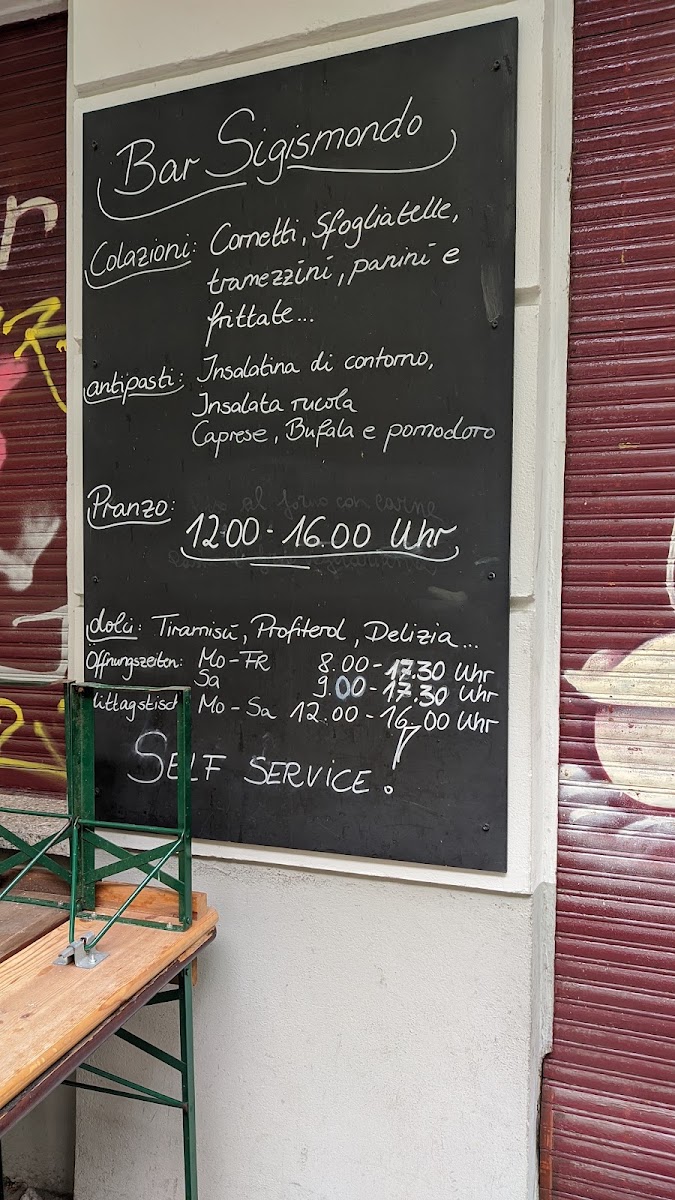 Bar Sigismondo
Colazioni: Cornetti, Sfogliatelle,
tramezzini, panini e
frittate...
antipasti: Insalatina di contorno,
Insalata rucola
Caprese, Bufala e pomodoro
Pranzo:
al forno con carne
12 00 - 16.00 Uhr
dolci: Tiramisū, Profiterol, Delizia...
Öffnungszeiten: Mo - FR 8.00 - 17.30 Uhr
Sa 9.00 - 17.30 Uhr
ittagstisch Mo - Sa 12.00 - 16.00 Uhr
SELF SERVICE!